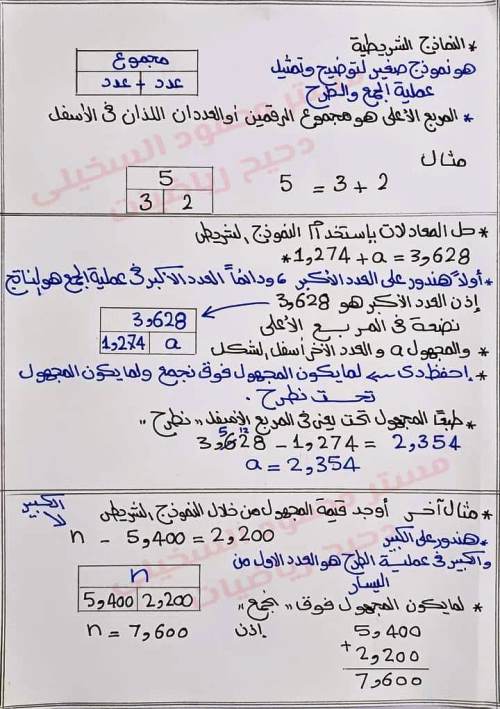 * النماذج الشريطية
هو نموذج صغير لتوضيح وتمثيل
عملية الجمع والطرح
مجموع
عدد + عدد
* المربع الأعلى هو مجموع الرقمين أو العددان اللذان فى الأسفل
مثال
5 = 3 + 2
5
3 2
* حل المعادلات بإستخدام النموذج الشريطى
* 1,274 + a = 3,628
* أولاً هندور على العدد الأكبر، ودائماً العدد الأكبر فى عملية الجمع هو الناتج
إذن العدد الأكبر هو 3,628
نضعة فى المربع الأعلى
3,628
1,274 a
* والمجهول a والعدد الآخر أسفل الشكل
* إحفظ دى ← لما يكون المجهول فوق نجمع ولما يكون المجهول
تحت نطرح .
* طبعًا المجهول تحت يعنى فى المربع الأسفل „ نطرح "
5 12
3,628 - 1,274 = 2,354
a = 2,354
* مثال آخر أوجد قيمة المجهول من خلال النموذج الشريطى
الكبير
n - 5,400 = 2,200
* هندور على الكبير
والكبير فى عملية الطرح هو العدد الاول من
اليسار
n
5,400 2,200
* لما يكون المجهول فوق „ نجمع "
إذن n = 7,600
5,400
+ 2,200
7,600
مستر محمود السخيلى
دحيح رياضيات
مستر محمود السخيلى
دحيح رياضيات